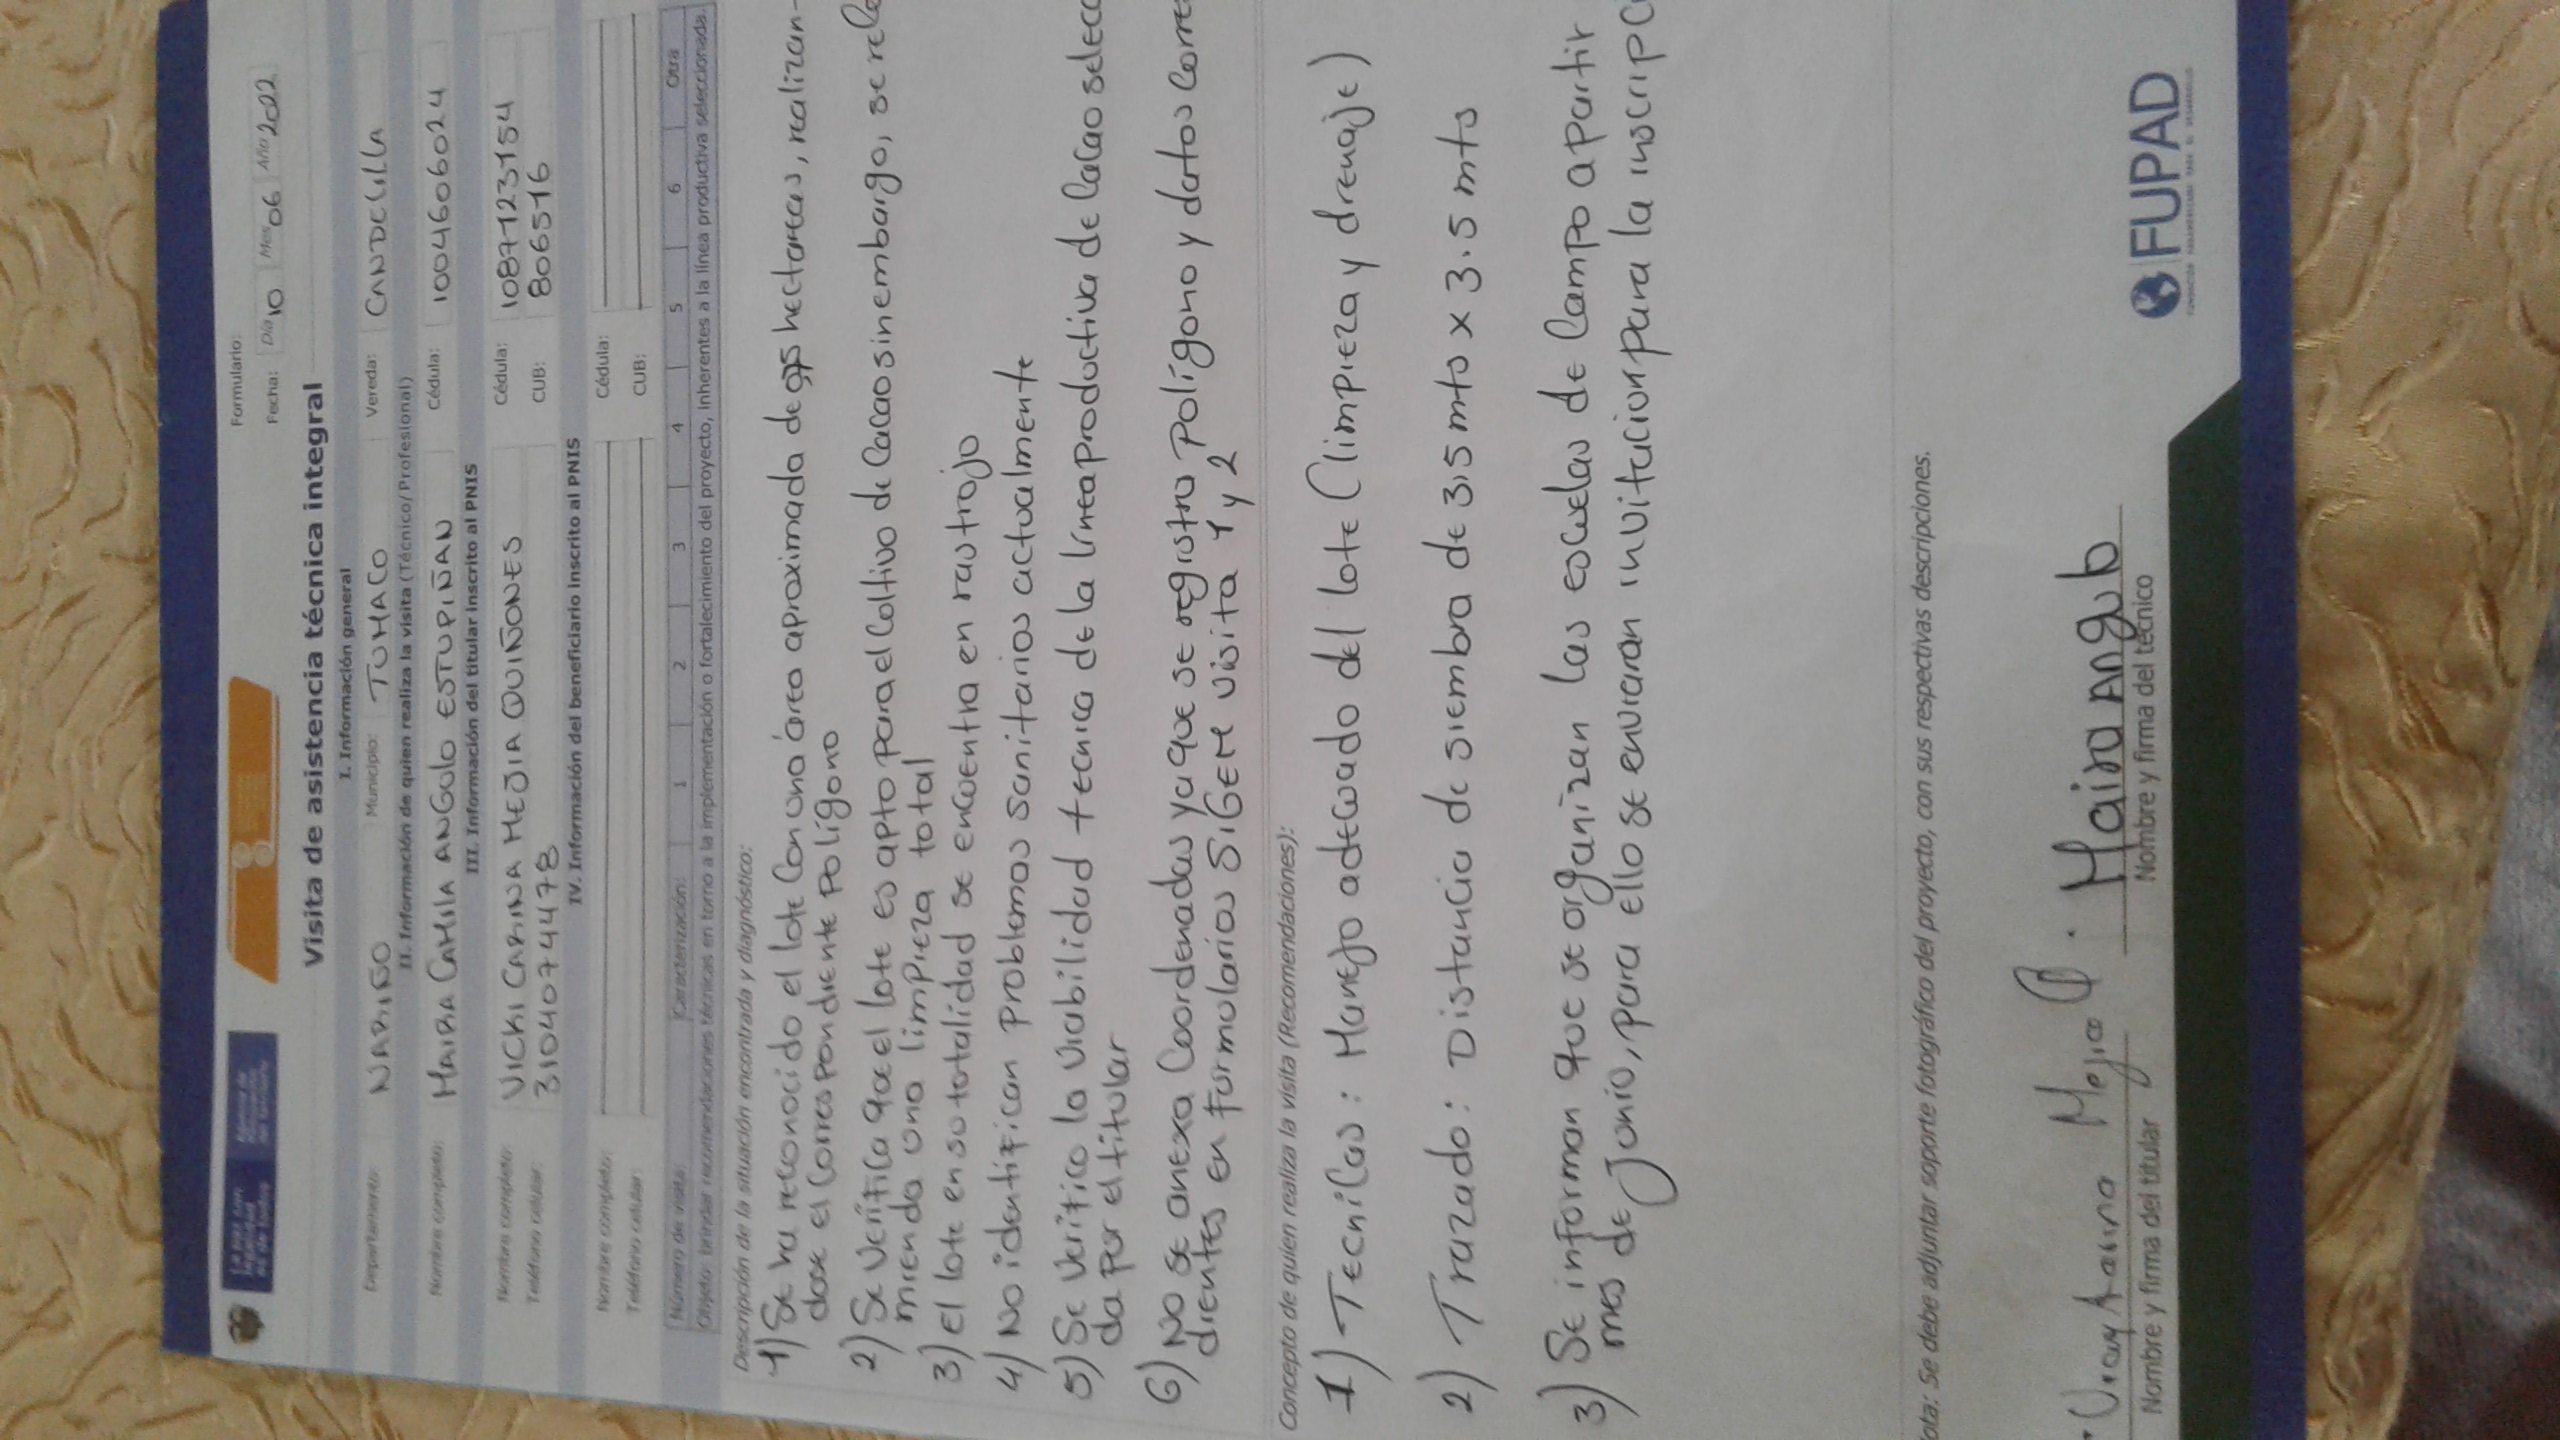 Formulario:
Fecha: Día 10 Mes 06 Año 2022
Visita de asistencia técnica integral
I. Información general
Departamento: NARIÑO Municipio: TUMACO Vereda: CANDELILLA
II. Información de quien realiza la visita (Técnico/Profesional)
Nombre completo: MAIRA CAMILA ANGULO ESTUPIÑAN Cédula: 1004606024
III. Información del titular inscrito al PNIS
Nombre completo: VICKI CARINA MEJIA QUIÑONES Cédula: 1087123154
Teléfono celular: 3104074478 CUB: 8065516
IV. Información del beneficiario inscrito al PNIS
Nombre completo: Cédula:
Teléfono celular: CUB:
Número de visita: Caracterización: 1 2 3 4 5 6 Otra
Objeto: brindar recomendaciones técnicas en torno a la implementación o fortalecimiento del proyecto, inherentes a la línea productiva seleccionada.
Descripción de la situación encontrada y diagnóstico:
1) Se ha reconocido el lote con una área aproximada de hectareas, realizan-
dose el correspondiente polígono
2) Se verifica que el lote es apto para el coltivo de cacao sin embargo, se
mienda una limpieza total
3) El lote en su totalidad se encuentra en rastrojo
4) No identifican problemas sanitarios actualmente
5) Se verifico la viabilidad tecnica de la línea productiva de cacao selecc
da por el titular
6) No se anexa coordenadas ya que se registro polígono y datos corre
dientes en formularios SIGEM visita 1 y 2
Concepto de quien realiza la visita (Recomendaciones):
1) Tecnicas: Manejo adecuado del lote (limpieza y drenaje)
2) Trazado: Distancia de siembra de 3.5 mts x 3.5 mts
3) Se informan que se organizan las escuelas de campo apartir
mes de junio, para ello se enviaran invitacion para la inscripci
Nota: Se debe adjuntar soporte fotográfico del proyecto, con sus respectivas descripciones.
Mejia Q. Maira Angulo
Nombre y firma del titular Nombre y firma del técnico
FUPAD